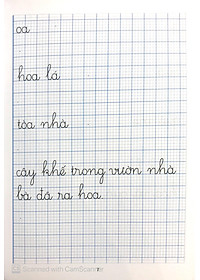 oa
hoa lá
tòa nhà
cây khế trong vườn nhà
bà đã ra hoa
Scanned with CamScanner